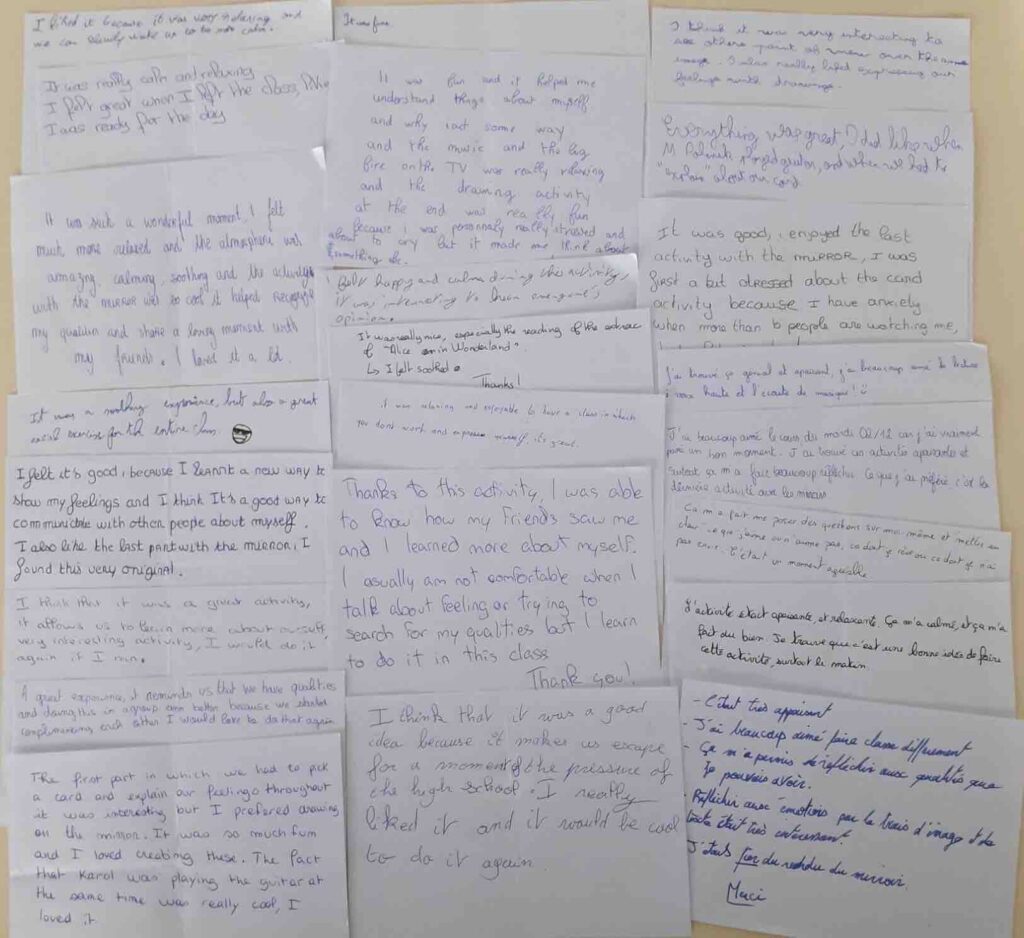 I liked it because it was very relaxing and
we can slowly wake up to be more calm.
It was really calm and relaxing
I felt great when I left the class, like
I was ready for the day
It was such a wonderful moment, I felt
much more relaxed and the atmosphere was
amazing, calming, soothing and the activity
with the mirror was so cool it helped recognize
my qualities and share a loving moment with
my friends. I loved it a lot.
It was a soothing experience, but also a great
social exercise for the entire class.
I felt it's good, because I learnt a new way to
show my feelings and I think It's a good way to
communicate with other people about myself.
I also like the last part with the mirror, I
found this very original.
I think that it was a great activity,
it allows us to learn more about ourself,
very interesting activity, I would do it
again if I can.
A great experience, it reminds us that we have qualities
and doing this in a group was better because we started
complimenting each other I would love to do that again
The first part in which we had to pick
a card and explain our feelings throughout
it was interesting but I prefered drawing
on the mirror. It was so much fun
and I loved creating these. The fact
that Karol was playing the guitar at
the same time was really cool, I
loved it.
It was fun
It was fun and it helped me
understand things about myself
and why i act some way
and the music and the big
fire on the TV was really relaxing
and the drawing activity
at the end was really fun
because i was personnaly really stressed and
about to cry but it made me think about
something else.
I felt happy and calm during the activity,
it was interesting to hear everyone's
opinion.
It was really nice, especially the reading of the extract
of "Alice in Wonderland".
↳ I felt soothed.
Thanks!
it was relaxing and enjoyable to have a class in which
you dont work and express yourself, it's great.
Thanks to this activity, I was able
to know how my friends saw me
and I learned more about myself.
I usually am not comfortable when I
talk about feeling or trying to
search for my qualities but I learn
to do it in this class
Thank you!
I think that it was a good
idea because it makes us escape
for a moment of the pressure of
the high school. I really
liked it and it would be cool
to do it again
I think it was very interesting to
see others point of view over the same
image. I also really liked expressing our
feelings with drawings.
Everything was great, I did like when
M played guitar, and when we had to
"explain" about our card
It was good, i enjoyed the last
activity with the mirror, I was
first a bit stressed about the card
activity because I have anxiety
when more than 6 people are watching me,
J'ai trouvé ça génial et apaisant, j'ai beaucoup aimé la lecture
à voix haute et l'écoute de musique!
J'ai beaucoup aimé le cours du mardi 02/12 car j'ai vraiment
passé un bon moment. J'ai trouvé les activités apaisantes et
surtout ça m'a fait beaucoup réfléchir. Ce que j'ai préféré c'est la
dernière activité avec les miroirs
Ça m'a fait me poser des questions sur moi même et mettre au
clair ce que j'aime ou n'aime pas, ce dont j'ai rêvé ou ce dont je n'ai
pas envie. C'était un moment agréable
L'activité était apaisante, et relaxante. Ça m'a calmé, et ça m'a
fait du bien. Je trouve que c'est une bonne idée de faire
cette activité, surtout le matin.
- C'était très apaisant
- J'ai beaucoup aimé faire classe différement
- Ça m'a permis de réfléchir aux qualités que
je pouvais avoir.
- Réfléchir aux émotions par le biais d'image et de
texte était très intéressant.
J'étais fier du rendu du miroir.
Merci